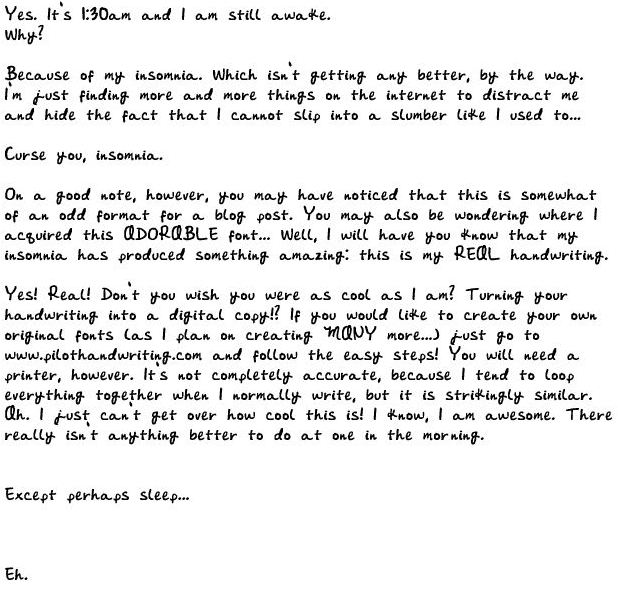 Yes. It's 1:30am and I am still awake.
Why?
Because of my insomnia. Which isn't getting any better, by the way.
I'm just finding more and more things on the internet to distract me
and hide the fact that I cannot slip into a slumber like I used to...
Curse you, insomnia.
On a good note, however, you may have noticed that this is somewhat
of an odd format for a blog post. You may also be wondering where I
acquired this ADORABLE font... Well, I will have you know that my
insomnia has produced something amazing: this is my REAL handwriting.
Yes! Real! Don't you wish you were as cool as I am? Turning your
handwriting into a digital copy!? If you would like to create your own
original fonts (as I plan on creating MANY more...) just go to
www.pilothandwriting.com and follow the easy steps! You will need a
printer, however. It's not completely accurate, because I tend to loop
everything together when I normally write, but it is strikingly similar.
Ah. I just can't get over how cool this is! I know, I am awesome. There
really isn't anything better to do at one in the morning.
Except perhaps sleep...
Eh.